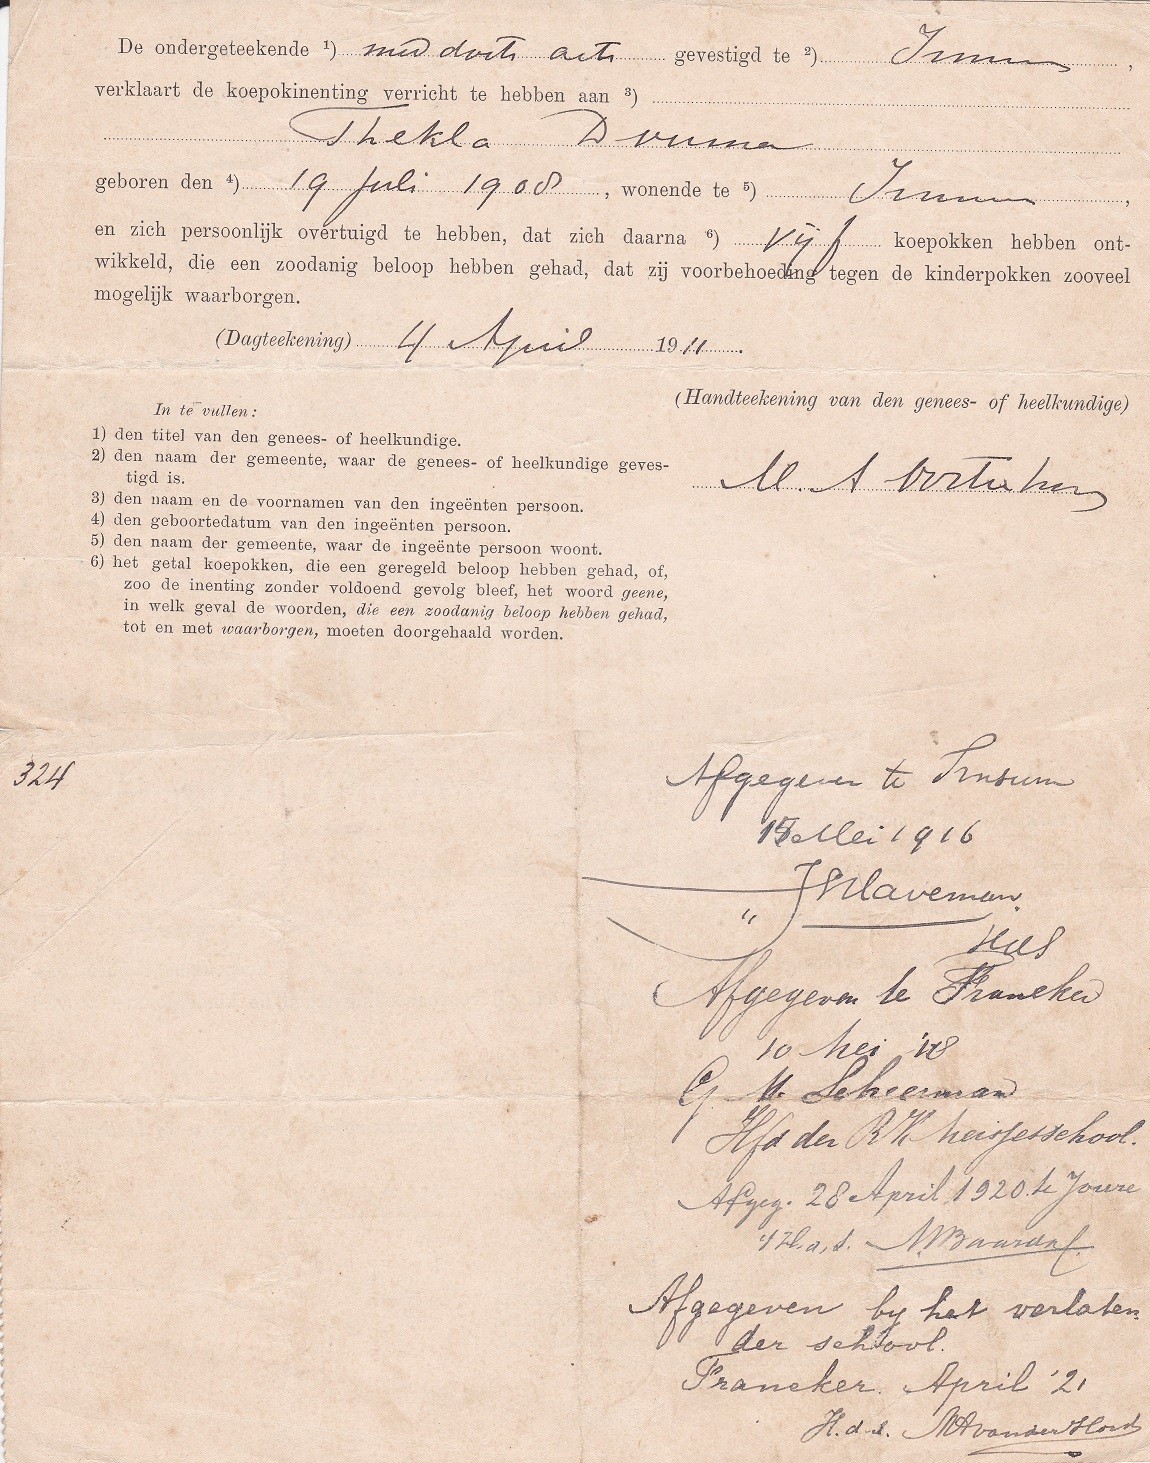 De ondergeteekende ¹) med doctr arts gevestigd te ²) Irnsum,
verklaart de koepokinenting verricht te hebben aan ³)
Thekla Douma
geboren den ⁴) 19 Juli 1908, wonende te ⁵) Irnsum,
en zich persoonlijk overtuigd te hebben, dat zich daarna ⁶) vijf koepokken hebben ont-
wikkeld, die een zoodanig beloop hebben gehad, dat zij voorbehoeding tegen de kinderpokken zooveel
mogelijk waarborgen.
(Dagteekening) 4 April 1911.
(Handteekening van den genees- of heelkundige)
M. A
In te vullen:
1) den titel van den genees- of heelkundige.
2) den naam der gemeente, waar de genees- of heelkundige geves-
tigd is.
3) den naam en de voornamen van den ingeënten persoon.
4) den geboortedatum van den ingeënten persoon.
5) den naam der gemeente, waar de ingeënte persoon woont.
6) het getal koepokken, die een geregeld beloop hebben gehad, of,
zoo de inenting zonder voldoend gevolg bleef, het woord geene,
in welk geval de woorden, die een zoodanig beloop hebben gehad,
tot en met waarborgen, moeten doorgehaald worden.
324
Afgegeven te Irnsum
Mei 1916
Haveman.
HdS
Afgegeven te Franeker
10 Mei '18
G. M. Scheerman
Hfd der RK Meisjesschool.
Afgeg. 28 April 1920 te Joure
H.d.s.
Afgegeven by het verlaten
der school.
Franeker. April '21
H.d.s. MA van der Hord